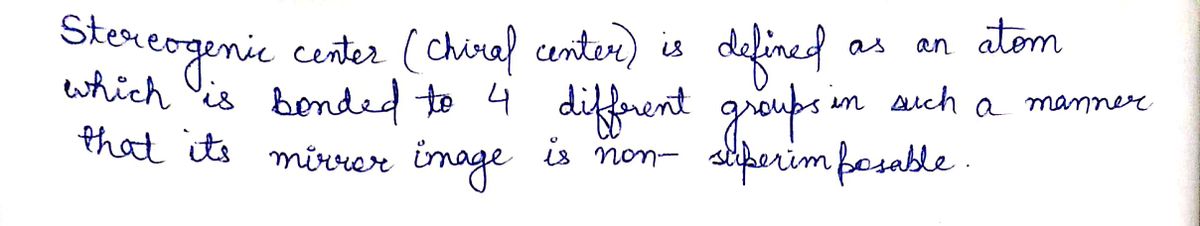 Stereogenic center (chiral center) is defined as an atom
which is bonded to 4 different groups in such a manner
that its mirror image is non- superimposable.